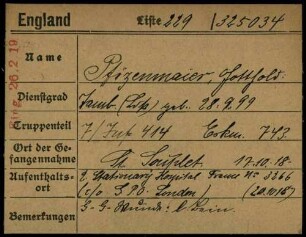 England Liste 229 / 325034
Eing. 26.2.19
Name Pfizenmaier, Gotthold
Dienstgrad (Utz) geb. 28.9.99
Truppenteil 7/ Inf 414 Erkm. 743
Ort der Gefangennahme St. Souplet 17.10.18
Aufenthaltsort 2 Stationary Hospital France No 3366
(c/o G P O London) (20.10.18)
Bemerkungen